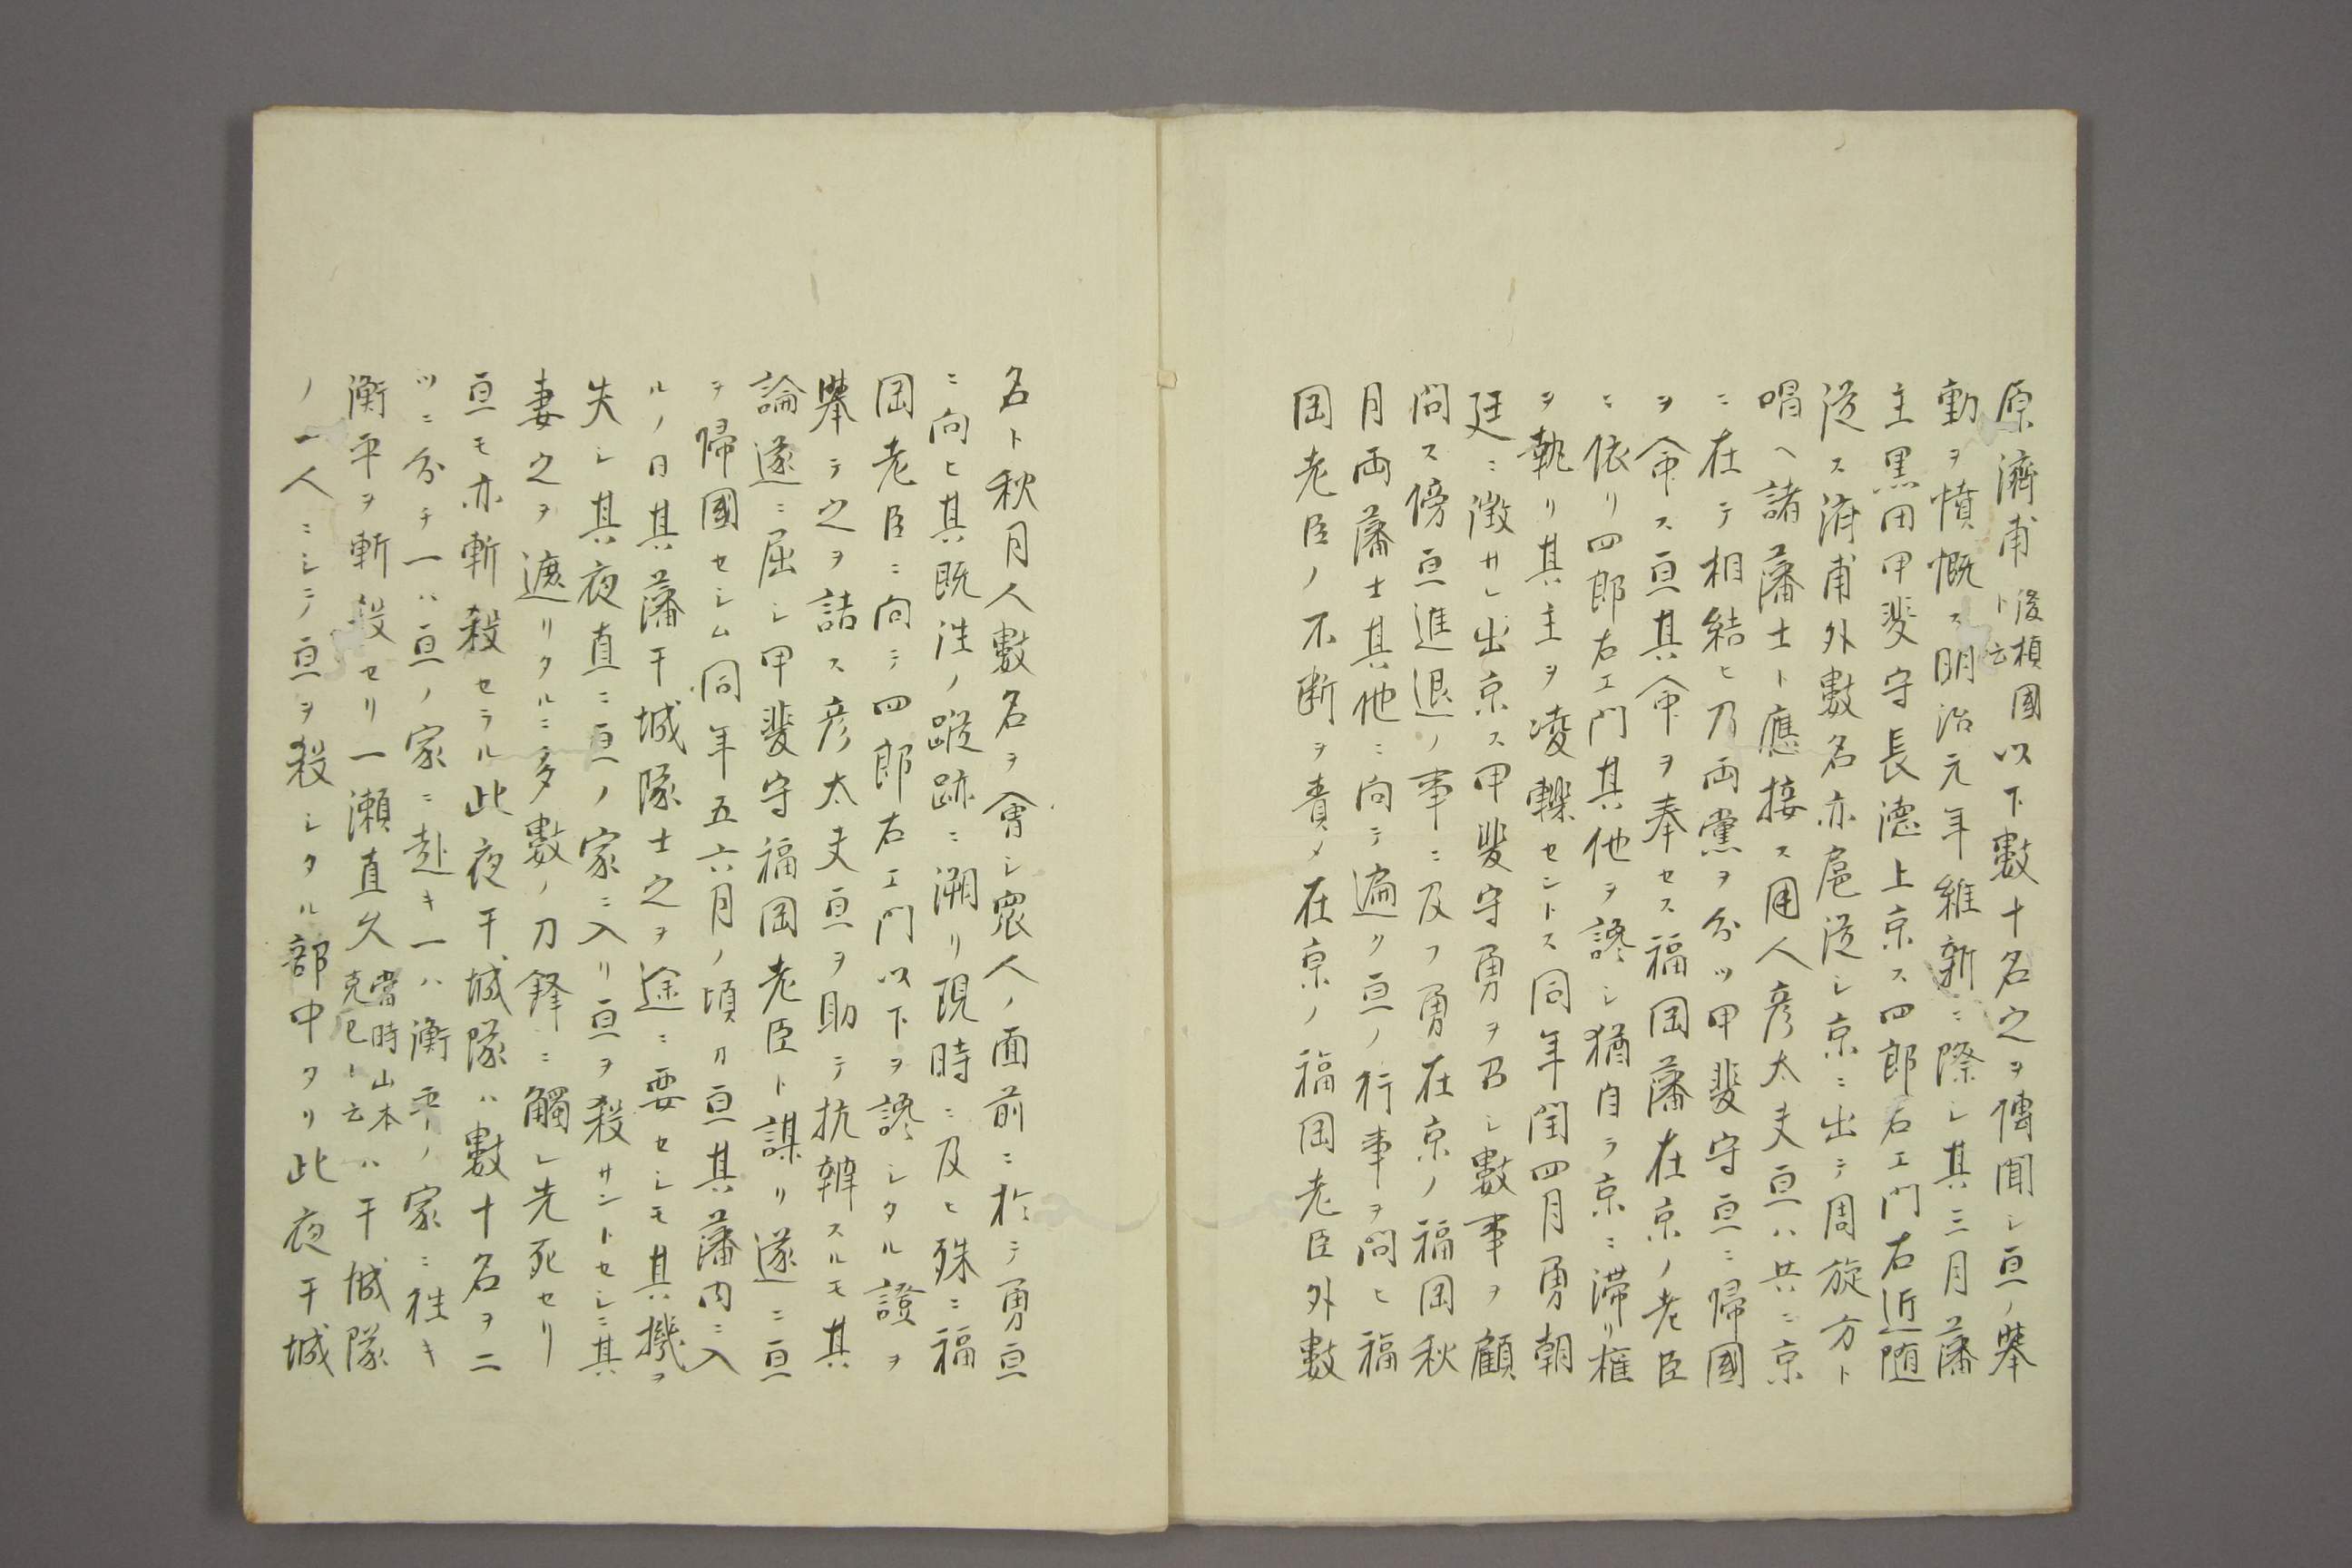 原濟甫後槓國ト云以下數十名之ヲ傳聞シ亘ノ擧
動ヲ憤慨ス明治元年維新ニ際シ其三月藩
主黒田甲斐守長德上京ス四郎右エ門右近随
從ス済甫外數名亦扈從シ京ニ出テ周旋方ト
唱ヘ諸藩士ト應接ス用人彦太夫亘ハ共ニ京
ニ在テ相結ヒ乃両黨ヲ分ツ甲斐守亘ニ帰國
ヲ命ス亘其命ヲ奉セス福岡藩在京ノ老臣
ニ依リ四郎右エ門其他ヲ讒シ猶自ラ京ニ滞リ権
ヲ執リ其主ヲ凌轢セントス同年閏四月勇朝
廷ニ徴サレ出京ス甲斐守勇ヲ召シ數事ヲ顧
問ス傍亘進退ノ事ニ及フ勇在京ノ福岡秋
月両藩士其他ニ向テ遍ク亘ノ行事ヲ問ヒ福
岡老臣ノ不断ヲ責メ在京ノ福岡老臣外數
名ト秋月人數名ヲ會シ衆人ノ面前ニ於テ勇亘
ニ向ヒ其既往ノ蹤跡ニ溯リ現時ニ及ヒ殊ニ福
岡老臣ニ向テ四郎右エ門以下ヲ讒シタル證ヲ
擧テ之ヲ詰ス彦太夫亘ヲ助テ抗辨スルモ其
論遂ニ屈シ甲斐守福岡老臣ト謀リ遂ニ亘
ヲ帰國セシム同年五六月ノ頃カ亘其藩内ニ入
ルノ日其藩干城隊士之ヲ途ニ要セシモ其機ヲ
失シ其夜直ニ亘ノ家ニ入リ亘ヲ殺サントセシニ其
妻之ヲ遮リタルニ多數ノ刀鋒ニ觸レ先死セリ
亘モ亦斬殺セラル此夜干城隊ハ數十名ヲ二
ツニ分チ一ハ亘ノ家ニ赴キ一ハ衡平ノ家ニ往キ
衡平ヲ斬殺セリ一瀬直久當時山本克巳ト云ハ干城隊
ノ一人ニシテ亘ヲ殺シタル部中タリ此夜干城